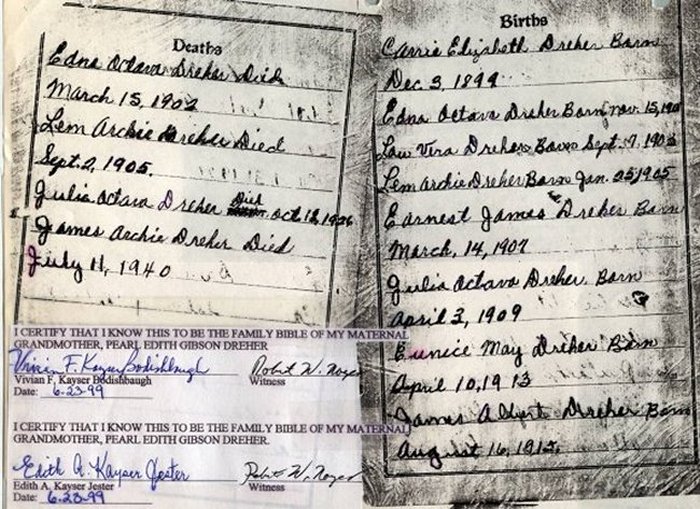 Deaths
Edna Octava Dreher Died
March 15, 1902
Lem Archie Dreher Died
Sept. 2, 1905.
Julia Octava Dreher Died Oct. 12, 1926
James Archie Dreher Died
July 11, 1940
I CERTIFY THAT I KNOW THIS TO BE THE FAMILY BIBLE OF MY MATERNAL
GRANDMOTHER, PEARL EDITH GIBSON DREHER
Vivian F. Kayser Bodishbaugh
Robert W. Noyes
Vivian F. Kayser Bodishbaugh
Witness
Date: 6-23-99
I CERTIFY THAT I KNOW THIS TO BE THE FAMILY BIBLE OF MY MATERNAL
GRANDMOTHER, PEARL EDITH GIBSON DREHER.
Edith A. Kayser Jester
Robert W. Noyes
Edith A. Kayser Jester
Witness
Date: 6-23-99
Births
Carrie Elizabeth Dreher Born
Dec 3, 1899
Edna Octava Dreher Born Nov. 15, 190
Lou Vera Dreher Born Sept. 7, 1903
Lem Archie Dreher Born Jan. 25, 1905
Earnest James Dreher Born
March, 14, 1907
Julia Octava Dreher Born
April 3, 1909
Eunice May Dreher Born
April 10, 1913
James Albert Dreher Born
August 16, 1915.